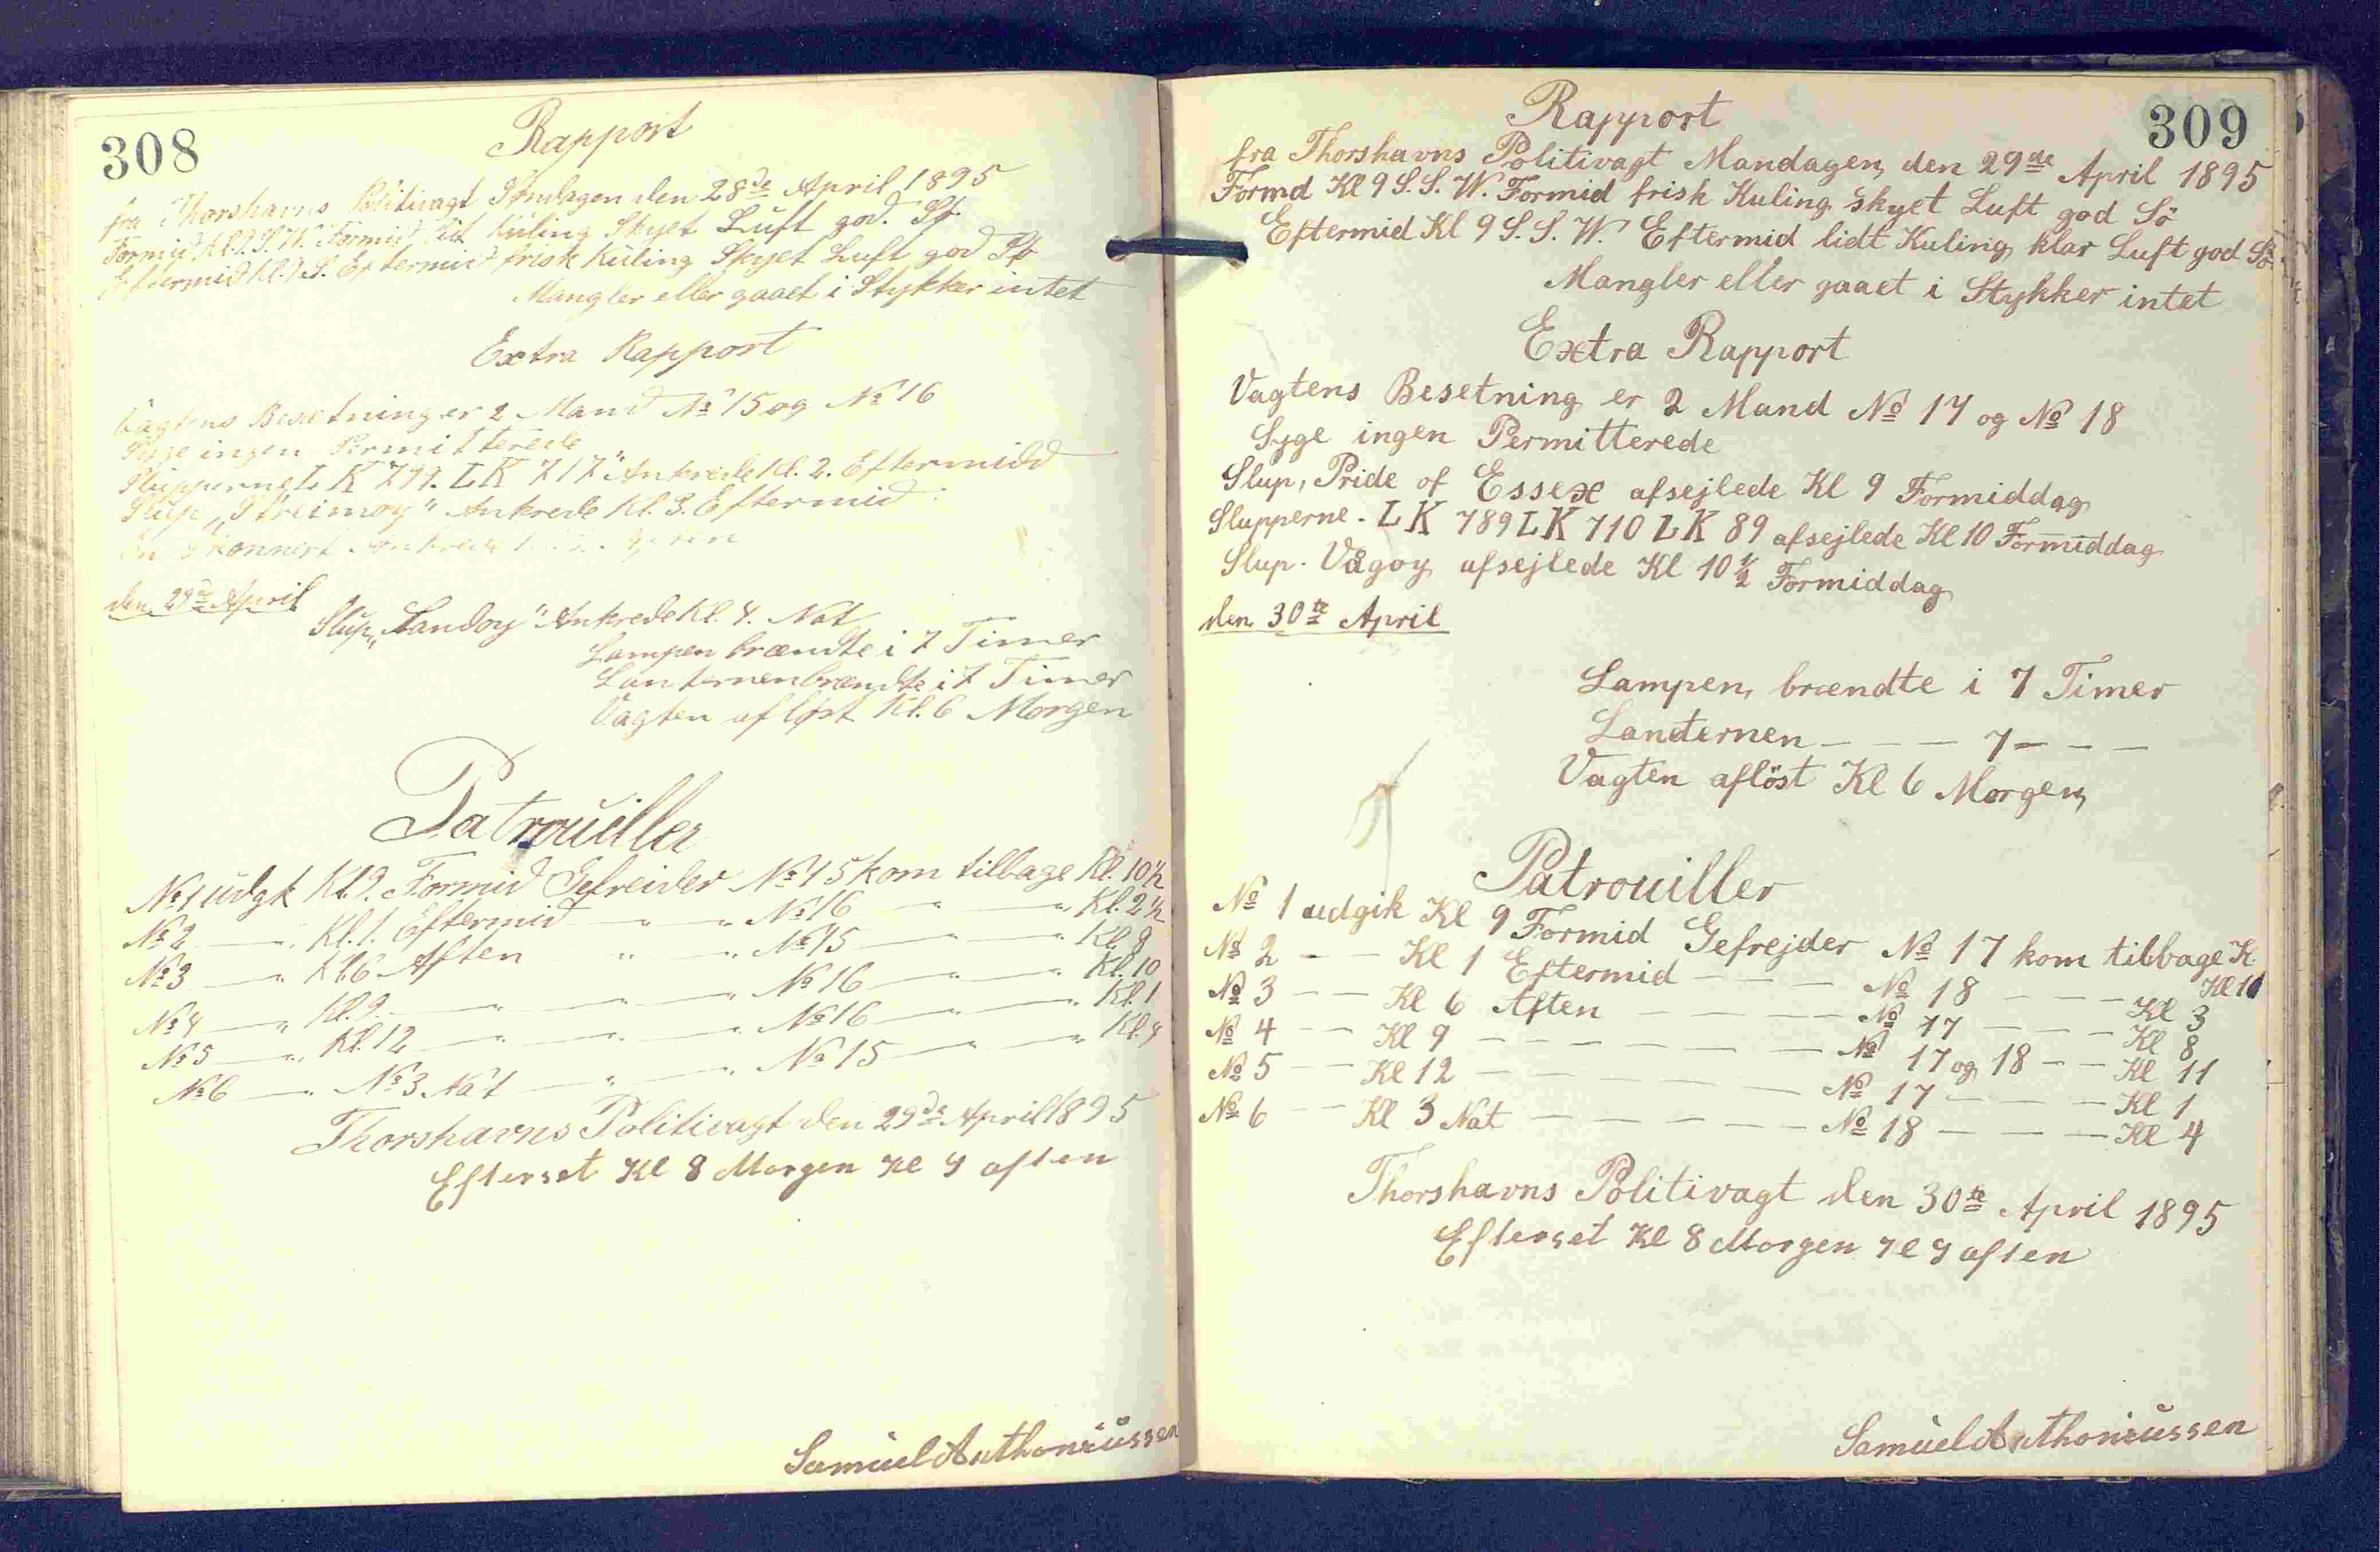 308
Rapport
fra Thorshavns Politivagt Søndagen den 28de April 1895
Formid Kl. 9. S. W. Formid lidt Kuling Skyet Luft god. Sø
Eftermid Kl. 9 S. Eftermid frisk Kuling Skyet Luft god Sø
Mangler eller gaaet i Stykker intet
Extra Rapport
Vagtens Besetning er 2 Mand No 15 og No 16
Syge ingen Permitterede
Slupperne LK 799. LK 717 Ankrede Kl. 2. Eftermidd
Slup „Streimoy" Ankrede Kl. 3. Eftermid
En Skonnert Ankrede
den 29de April
Slup „Sandoy" Ankrede Kl. 4. Nat
Lampen brændte i 7 Timer
Lanternen brændte i 7 Timer
Vagten afløst Kl. 6 Morgen
Patrouiller
No 1 udgk Kl. 9. Formid Gefreider No 15 kom tilbage Kl. 10½
No 2 — „ Kl. 1. Eftermid — „ — „ No 16 — „ — „ Kl. 2½
No 3 — „ Kl. 6 Aften „ — „ No 15 — „ — „ Kl. 8
No 4 — „ Kl. 9 — „ — „ — „ No 16 — „ — „ Kl. 10
No 5 — „ Kl. 12 — „ — „ — „ No 16 — „ — „ Kl. 1
No 6 — „ No 3 Nat — „ — „ No 15 — „ — „ Kl. 4
Thorshavns Politivagt den 29de April 1895
Efterset Kl 8 Morgen Kl 9 aften
Samuel Anthoniussen
309
Rapport
fra Thorshavns Politivagt Mandagen, den 29de April 1895
Formd Kl 9 S. S. W. Formid frisk Kuling skyet Luft god Sö
Eftermid Kl 9 S. S. W. Eftermid lidt Kuling, klar Luft god Sö
Mangler eller gaaet i Stykker intet
Extra Rapport
Vagtens Besetning er 2 Mand No 17 og No 18
Syge ingen Permitterede
Slup, Pride of Essex afsejlede Kl 9 Formiddag
Slupperne. LK 789 LK 710 LK 89 afsejlede Kl 10 Formiddag
Slup. Vågoy afsejlede Kl 10½ Formiddag
den 30te April
Lampen, brændte i 7 Timer
Lanternen — — — 7 — — —
Vagten aflöst Kl 6 Morgen,
Patrouiller
No 1 udgik Kl 9 Formid Gefrejder No 17 kom tilbage K
Kl 11
No 2 — — Kl 1 Eftermid — — — No 18 — — — Kl 3
No 3 — — Kl 6 Aften — — — — No 17 — — — Kl 8
No 4 — — Kl 9 — — — — — — No 17 og 18 — — Kl 11
No 5 — — Kl 12 — — — — — — No 17 — — — Kl 1
No 6 — — Kl 3 Nat — — — — — No 18 — — — Kl 4
Thorshavns Politivagt den 30te April 1895
Efterset Kl 8 Morgen Kl 9 aften
Samuel Anthoniussen